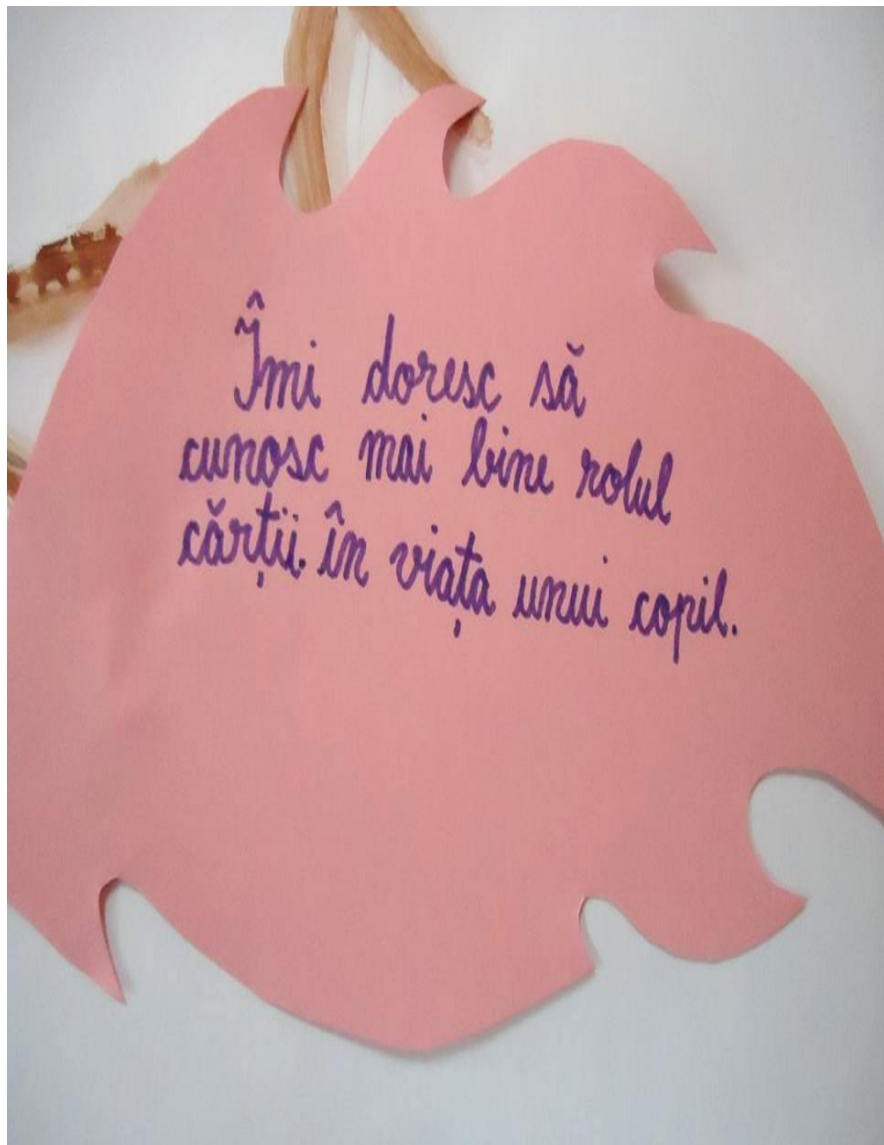 Îmi doresc să
cunosc mai bine rolul
cărții. în viața unui copil.